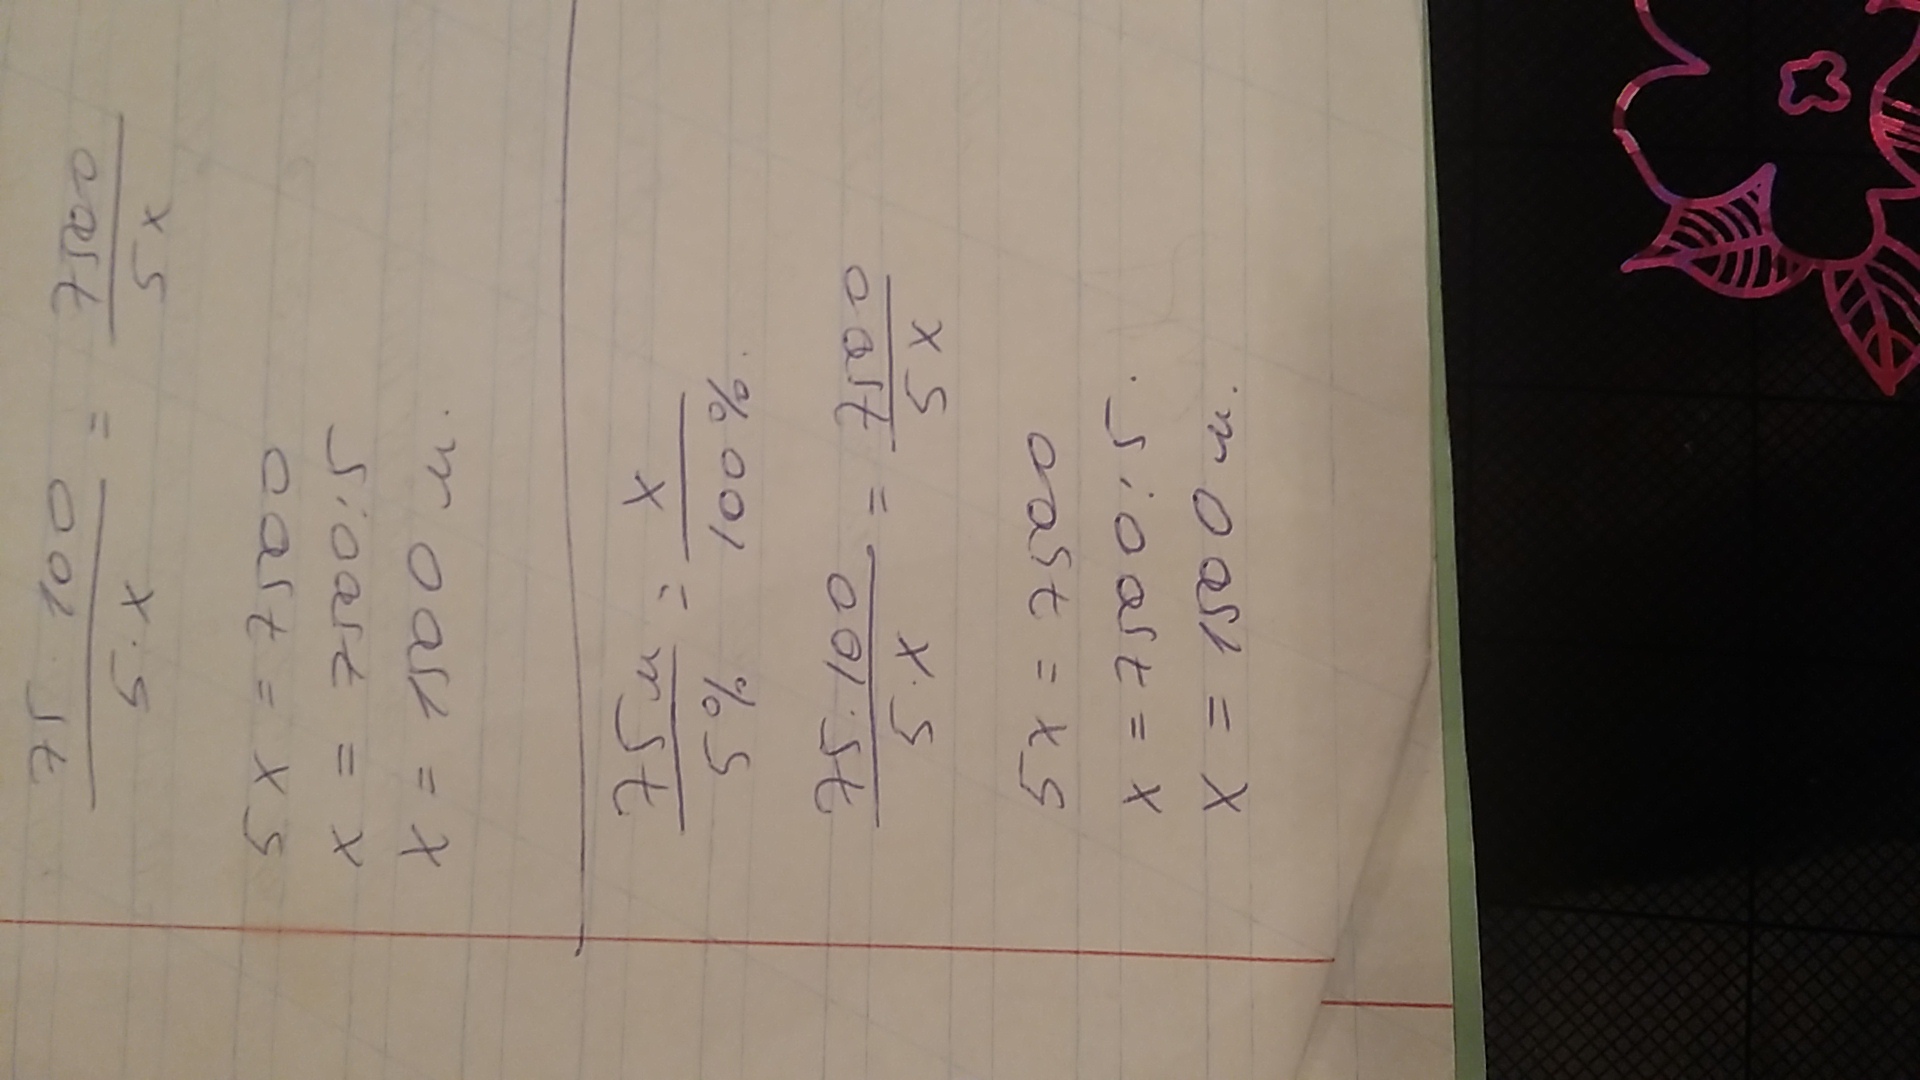 75 · 100 / 5 · x = 7500 / 5x
5x = 7500
x = 7500 : 5
x = 1500 м.
75 м / 5% = x / 100%.
75 · 100 / 5 · x = 7500 / 5x
5x = 7500
x = 7500 : 5.
x = 1500 м.